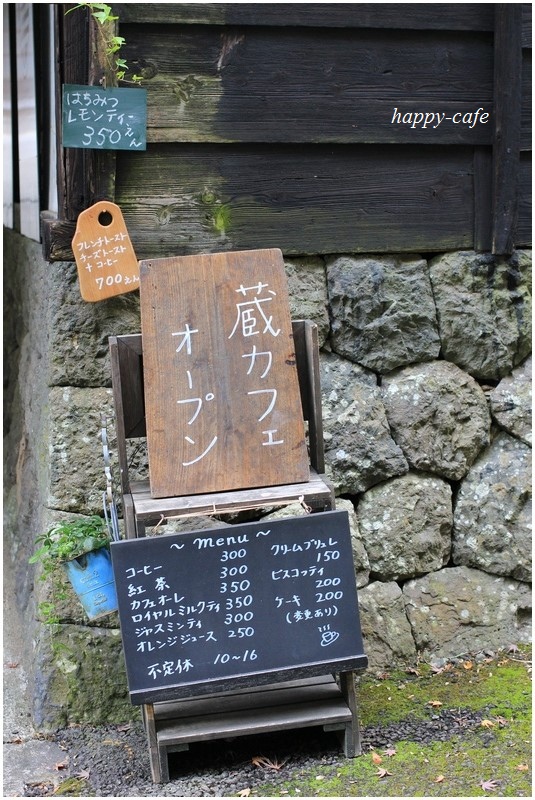 はちみつ
レモンティー
350えん
happy-cafe
フレンチトースト
チーズトースト
+コーヒー
700えん
蔵カフェ
オープン
~ menu ~
コーヒー 300
紅茶 300
カフェオーレ 350
ロイヤルミルクティ 350
ジャスミンティ 300
オレンジジュース 250
不定休 10~16
クリームブリュレ
150
ビスコッティ
200
ケーキ 200
(変更あり)